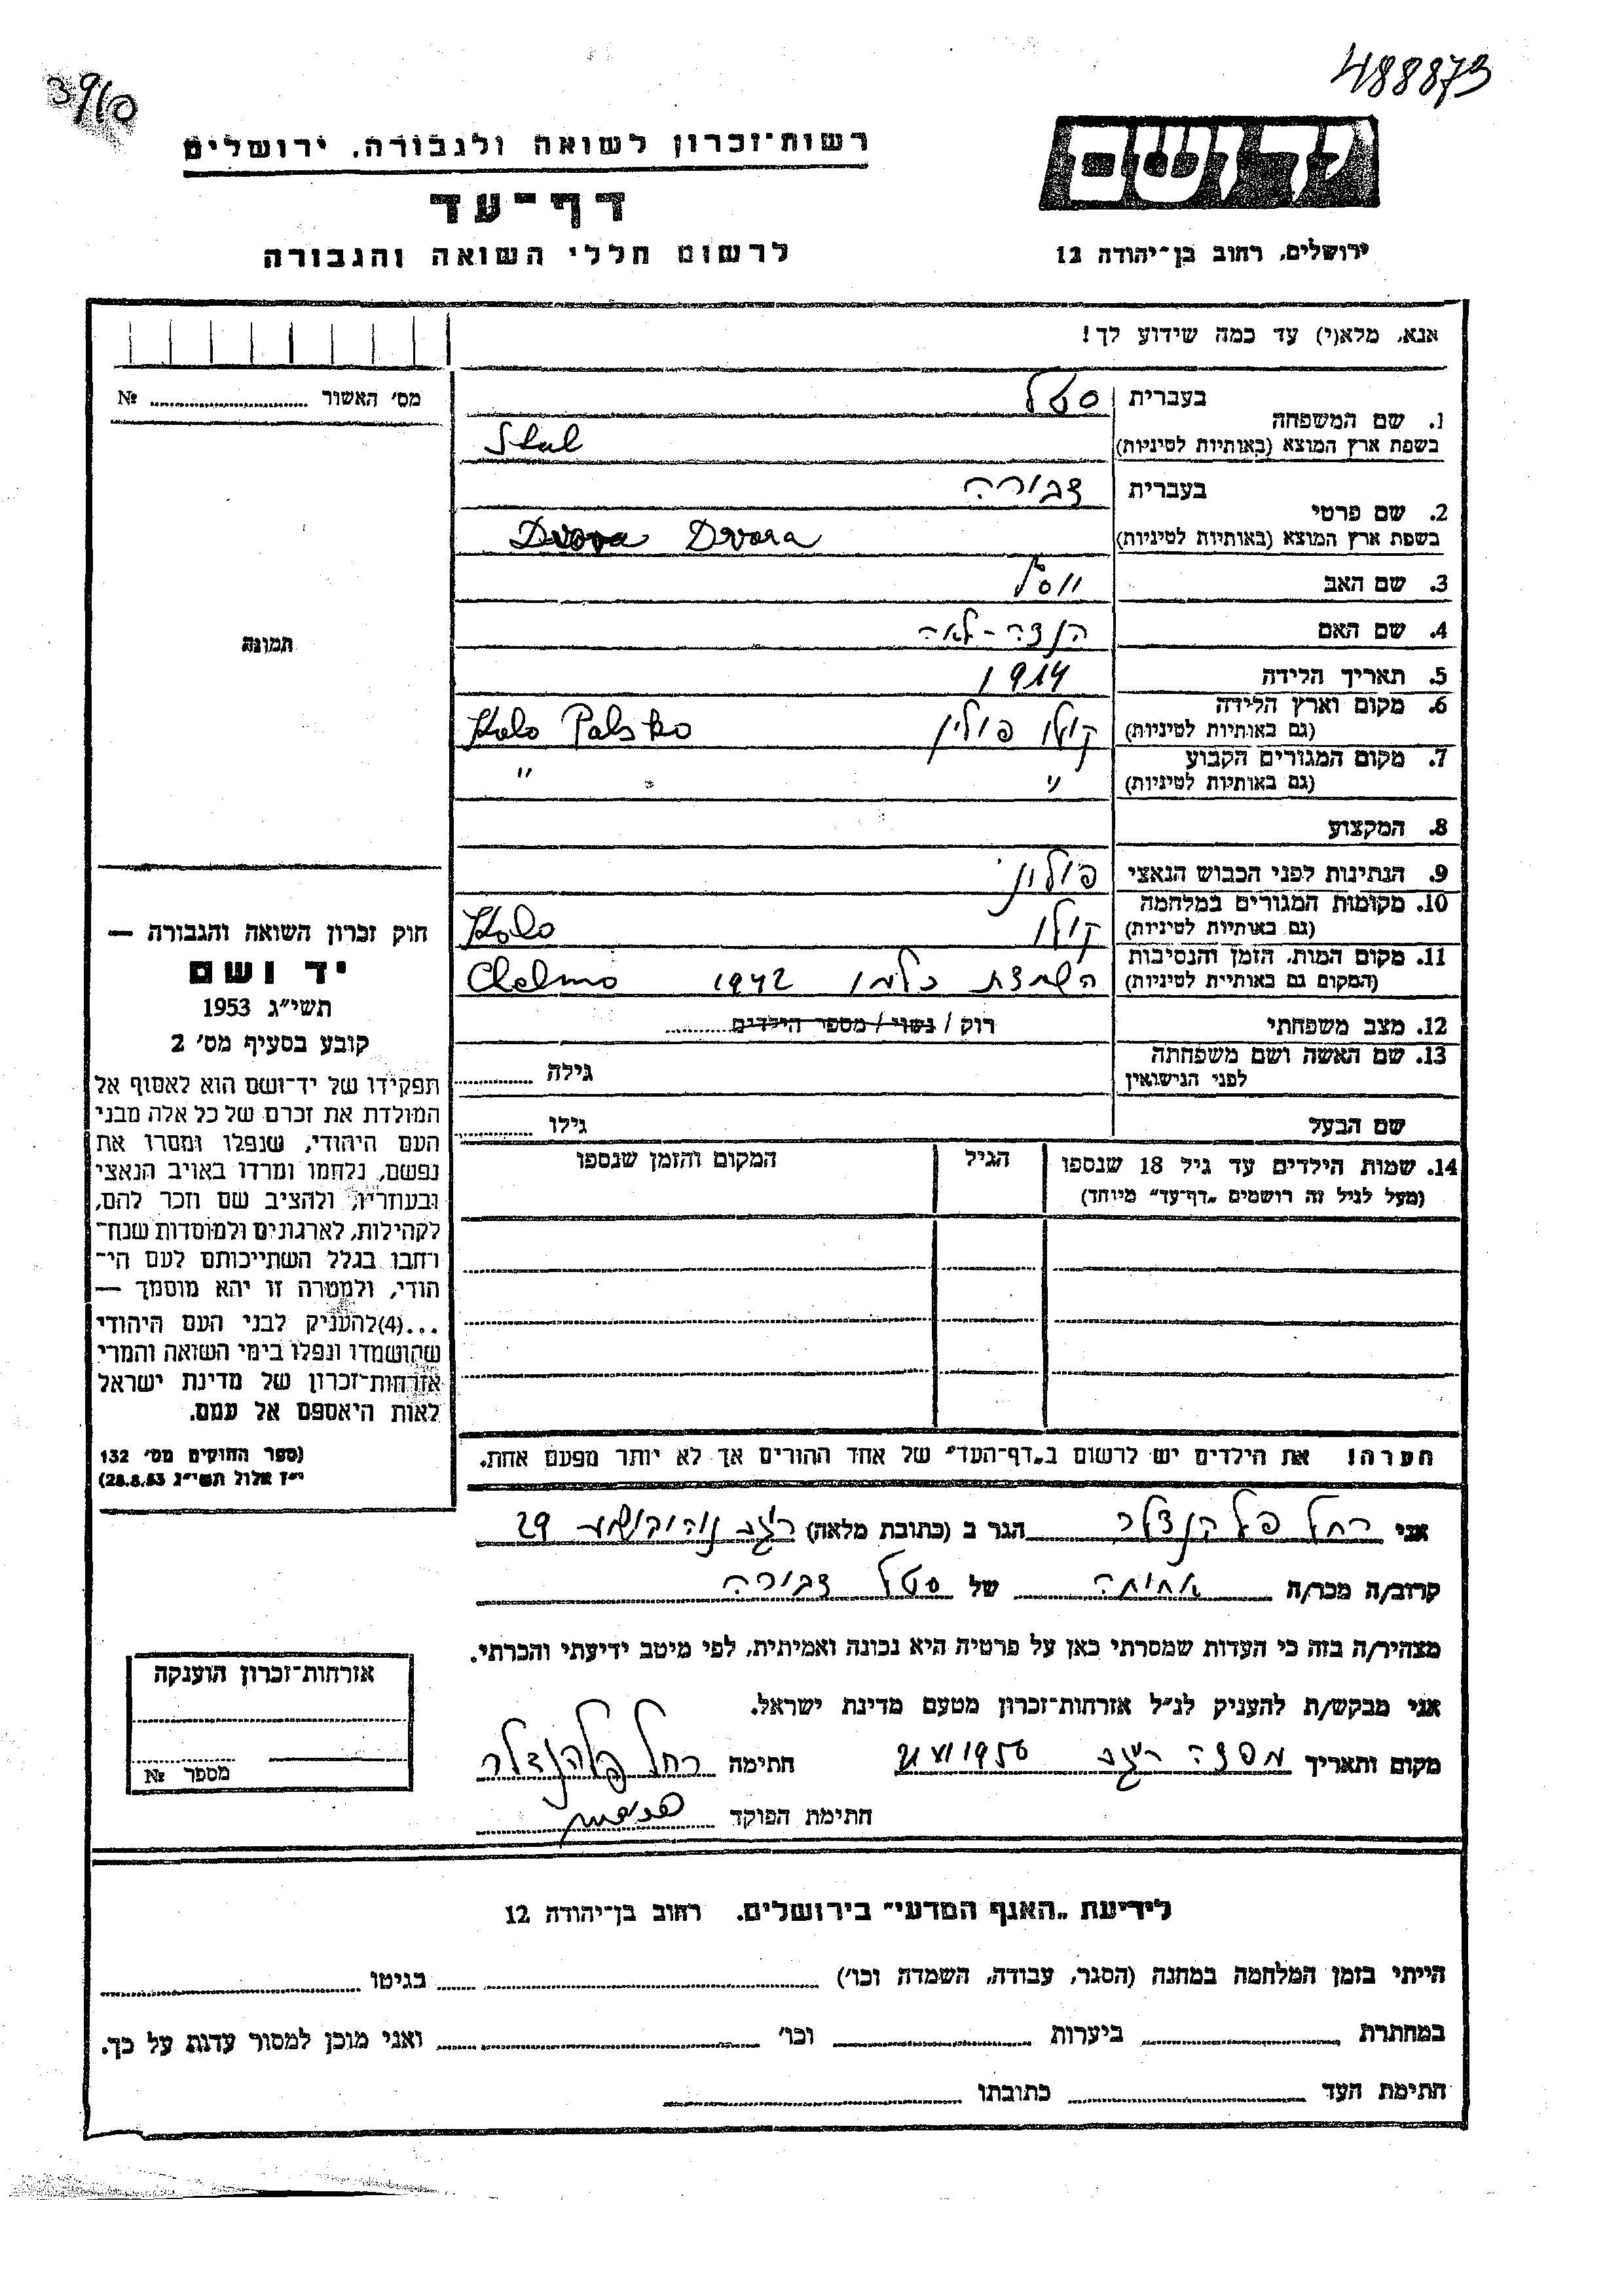 488873
3910
יד ושם
רשות־זכרון לשואה ולגבורה, ירושלים
דף־עד
לרשום חללי השואה והגבורה
ירושלים, רחוב בן־יהודה 12
אנא, מלא(י) עד כמה שידוע לך!
מס׳ האשור № 
1. שם המשפחה בעברית סטל
בשפת ארץ המוצא (באותיות לטיניות) Stal
2. שם פרטי בעברית דבורה
בשפת ארץ המוצא (באותיות לטיניות) Dvora Dvora
3. שם האב יוסל
4. שם האם הנדה-לאה
5. תאריך הלידה 1914
6. מקום וארץ הלידה קולו פולין Kolo Polsko
(גם באותיות לטיניות)
7. מקום המגורים הקבוע
(גם באותיות לטיניות) " "
8. המקצוע
9. הנתינות לפני הכבוש הנאצי פולין
10. מקומות המגורים במלחמה
(גם באותיות לטיניות) קולו Kolo
11. מקום המות, הזמן והנסיבות
(המקום גם באותיית לטיניות) השמדת כלמנו 1942 Chelmno
12. מצב משפחתי רוק / נשוי / מספר הילדים
13. שם האשה ושם משפחתה
לפני הנישואין גילה
שם הבעל גילו
14. שמות הילדים עד גיל 18 שנספו הגיל המקום והזמן שנספו
(מעל לגיל זה רושמים „דף־עד״ מיוחד)
תמונה
חוק זכרון השואה והגבורה —
יד ושם
תשי״ג 1953
קובע בסעיף מס׳ 2
תפקידו של יד־ושם הוא לאסוף אל
המולדת את זכרם של כל אלה מבני
העם היהודי, שנפלו ומסרו את
נפשם, נלחמו ומרדו באויב הנאצי
ובעוזריו, ולהציב שם וזכר להם,
לקהילות, לארגונים ולמוסדות שנח־
רחבו בגלל השתייכותם לעם הי־
הודי, ולמטרה זו יהא מוסמך —
...(4)להעניק לבני העם היהודי
שהושמדו ונפלו בימי השואה והמרי
אזרחות־זכרון של מדינת ישראל
לאות היאספם אל עמם.
(ספר החוקים מס׳ 132
י״ז אלול תשי״ג 28.8.53)
הערה! את הילדים יש לרשום ב„דף־העד״ של אחד ההורים אך לא יותר מפעם אחת.
אני רחל הנדלר הגר ב (כתובת מלאה) 29
קרוב/ה מכר/ה אחותה של סטל דבורה
מצהיר/ה בזה כי העדות שמסרתי כאן על פרטיה היא נכונה ואמיתית, לפי מיטב ידיעתי והכרתי.
אני מבקש/ת להעניק לנ״ל אזרחות־זכרון מטעם מדינת ישראל.
מקום ותאריך 1956 חתימה רחל
חתימת הפוקד
אזרחות־זכרון הוענקה
מספר №
לידיעת „האגף המדעי״ בירושלים, רחוב בן־יהודה 12
הייתי בזמן המלחמה במחנה (הסגר, עבודה, השמדה וכו׳) בגיטו
במחתרת ביערות וכו׳ ואני מוכן למסור עדות על כך.
חתימת העד כתובתו